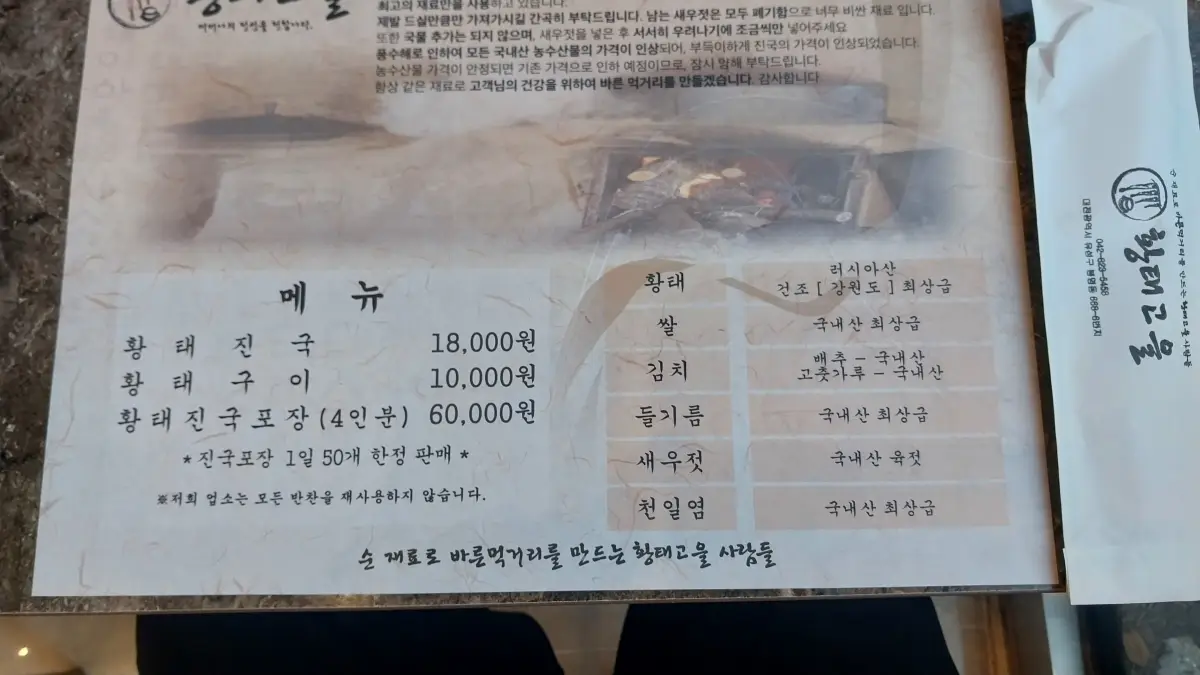 어머니의 정성을 전합니다.
최고의 재료만을 사용하고 있습니다.
제발 드실만큼만 가져가시길 간곡히 부탁드립니다. 남는 새우젓은 모두 폐기함으로 너무 비싼 재료 입니다.
또한 국물 추가는 되지 않으며, 새우젓을 넣은 후 서서히 우려나기에 조금씩만 넣어주세요
풍수해로 인하여 모든 국내산 농수산물의 가격이 인상되어, 부득이하게 진국의 가격이 인상되었습니다.
농수산물 가격이 안정되면 기존 가격으로 인하 예정이므로, 잠시 양해 부탁드립니다.
항상 같은 재료로 고객님의 건강을 위하여 바른 먹거리를 만들겠습니다. 감사합니다
메 뉴
황태진국 18,000원
황태구이 10,000원
황태진국포장(4인분) 60,000원
*진국포장 1일 50개 한정 판매*
※저희 업소는 모든 반찬을 재사용하지 않습니다.
황태 러시아산
건조 [ 강원도 ] 최상급
쌀 국내산 최상급
김치 배추 – 국내산
고춧가루 – 국내산
들기름 국내산 최상급
새우젓 국내산 육젓
천일염 국내산 최상급
순 재료로 바른먹거리를 만드는 황태고을 사람들
순 재료로 바른먹거리를 만드는 황태고을 사람들
황태고을
대전광역시 유성구